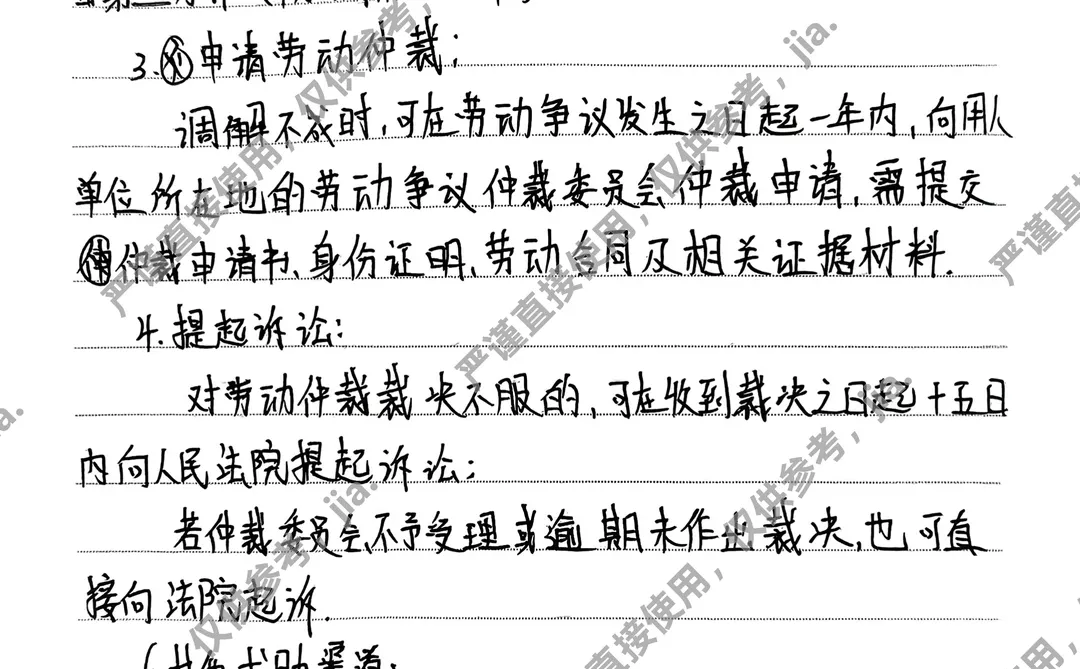 3.申请劳动仲裁:
调解不成时,可在劳动争议发生之日起一年内,向用人
单位所在地的劳动争议仲裁委员会仲裁申请,需提交
仲裁申请书、身份证明、劳动合同及相关证据材料.
4.提起诉讼:
对劳动仲裁裁决不服的,可在收到裁决之日起十五日
内向人民法院提起诉讼;
若仲裁委员会不予受理或逾期未作出裁决,也可直
接向法院起诉.
严谨直接使用,仅供参考,jia.
严谨直接使用,仅供参考,jia.
仅供参考,jia.
直接使用,仅供参考,jia.
严谨直接